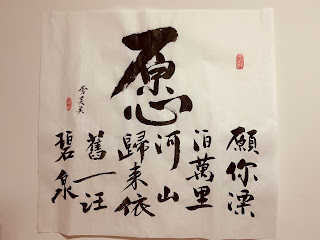 愿
願你漂
泊萬里
河山
歸来依
舊一汪
碧泉